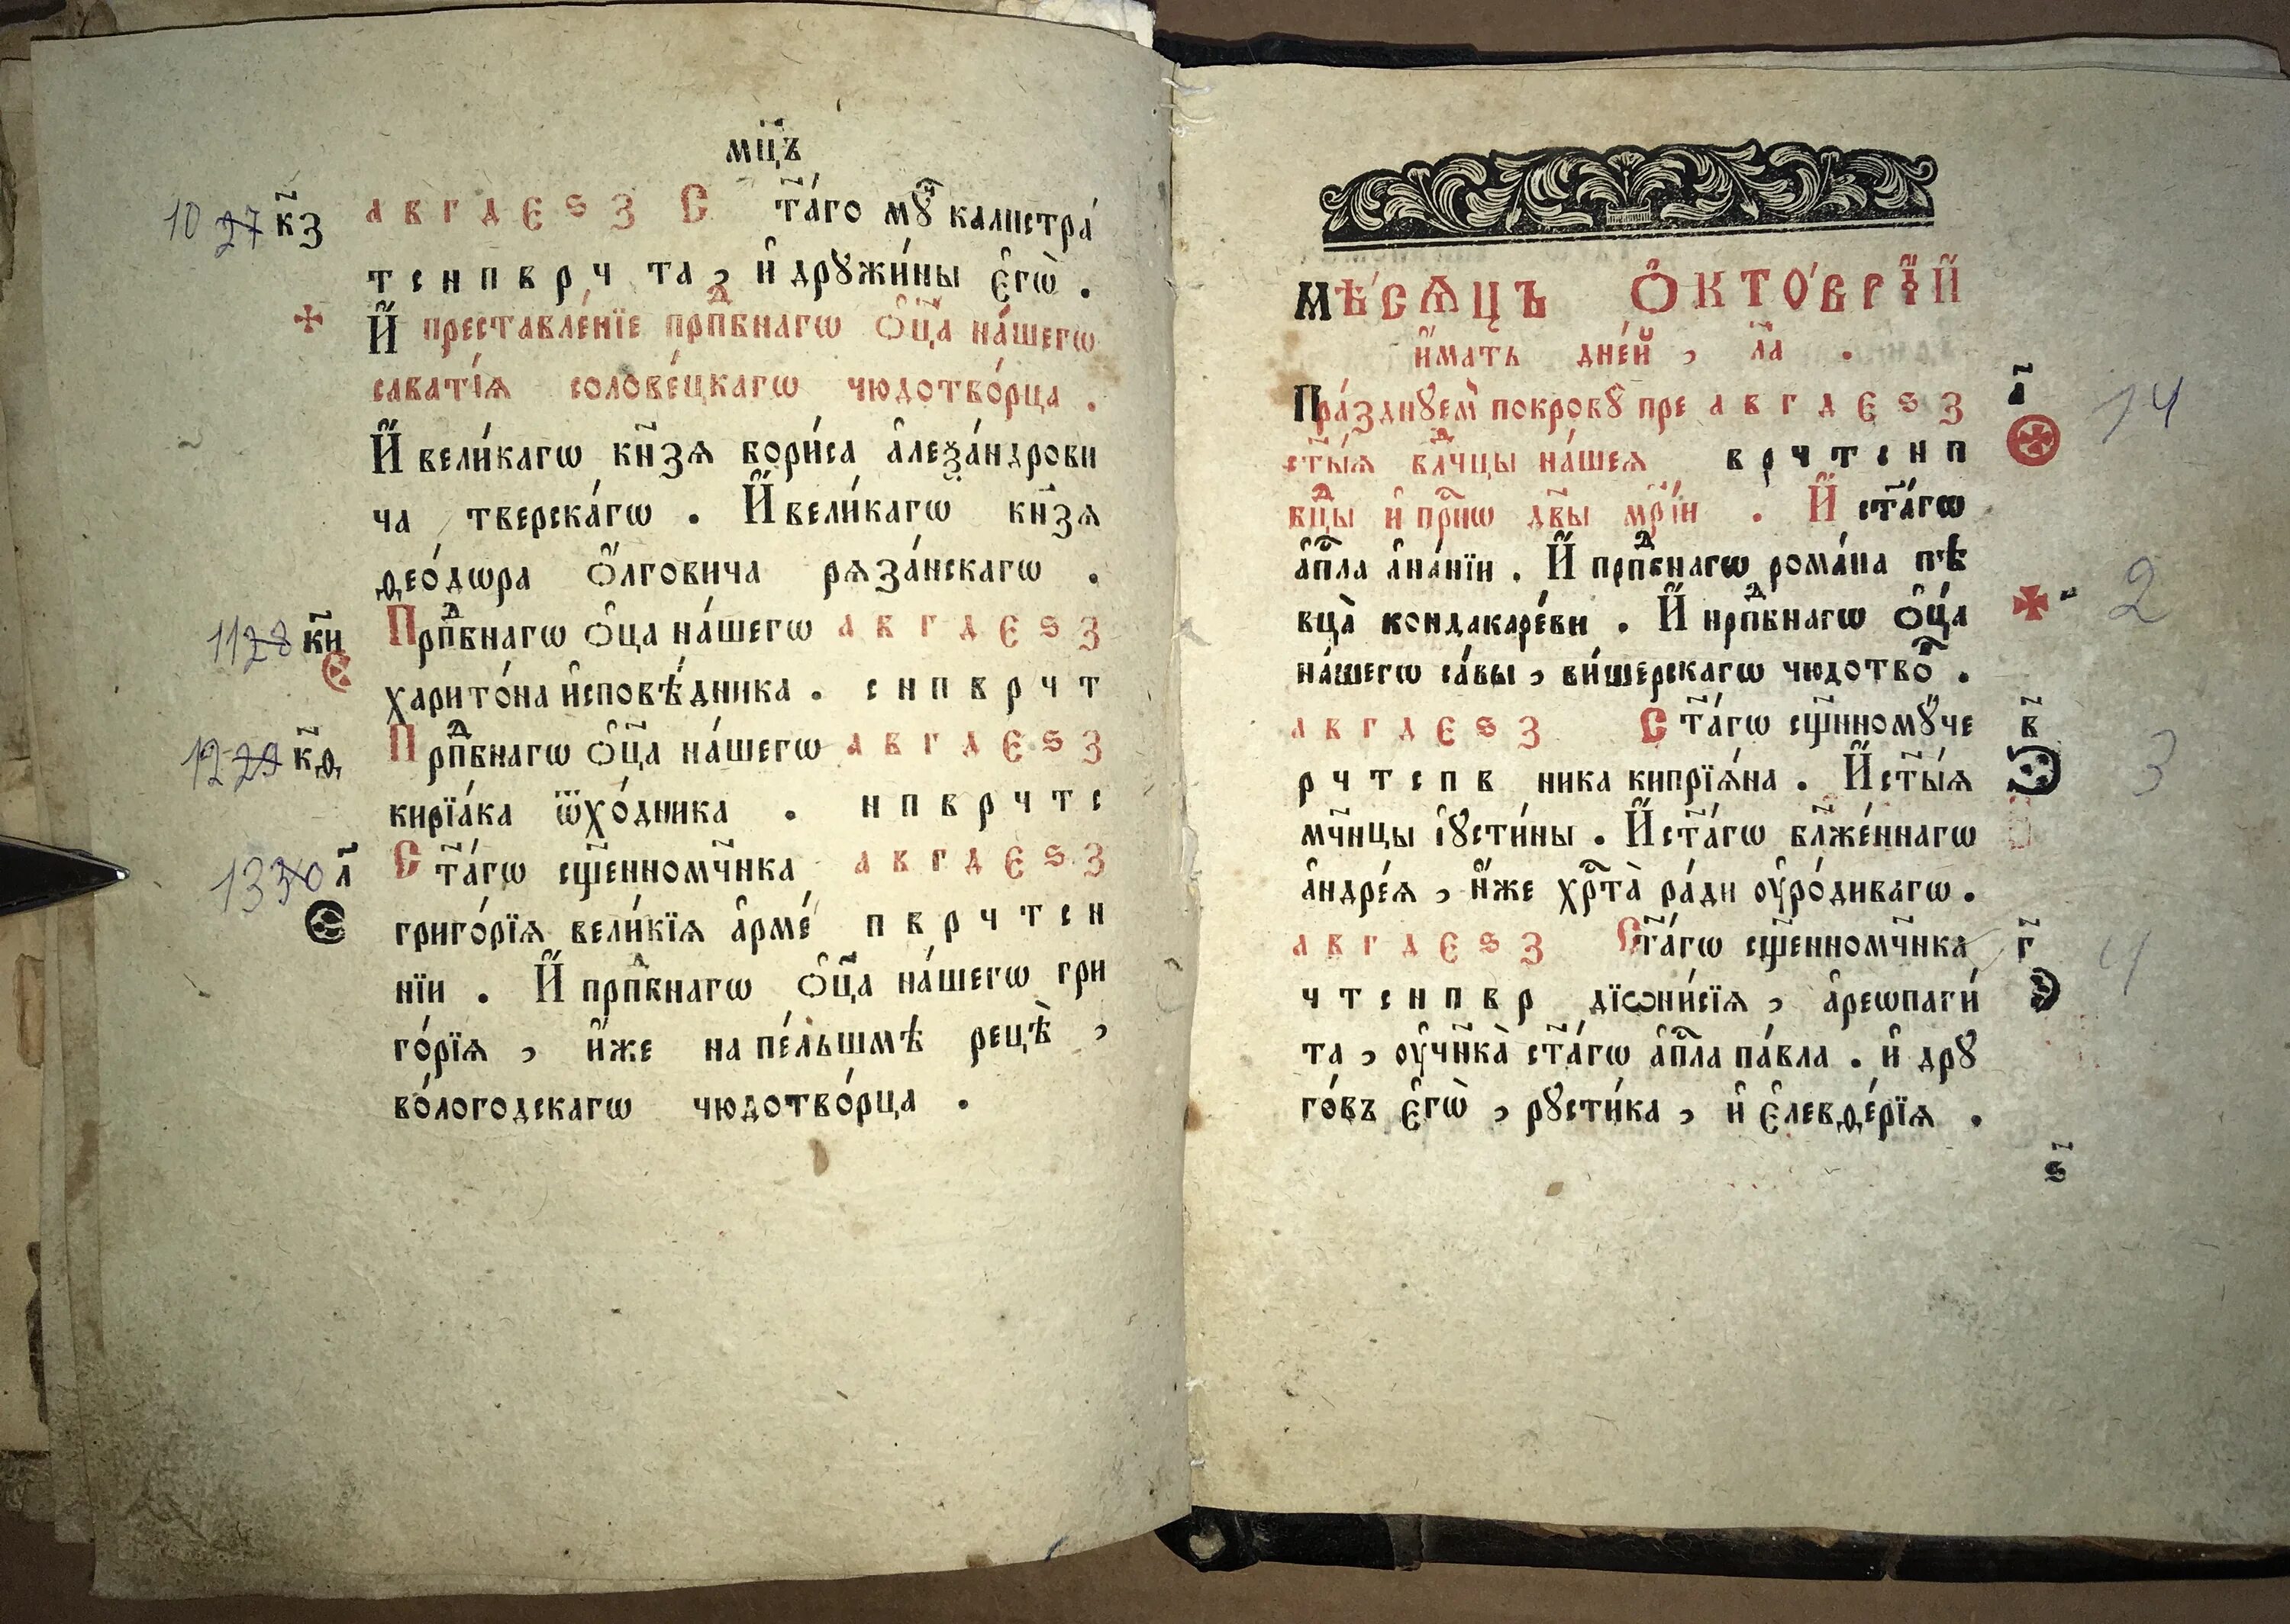 мц҃ъ
10 27 к҃з а в г д є ѕ з С т҃а́го му҃ калистра́
т с н п в р ч та , и҆ дрꙋжи́ны є҆гѡ̀ .
И҆ преставле́нїе прпⷣбнагѡ ѻ҆ц҃а на́шегѡ
саватїѧ солове́цкагѡ чюдотво́рца .
И҆ вели́кагѡ кн҃зѧ бори́са а҆леѯа́ндрови
ча тверска́гѡ . И҆ вели́кагѡ кн҃зѧ
ѳео́дѡра ѻ҆́лговича рѧза́нскагѡ .
11 28 к҃и Прпⷣбнагѡ ѻ҆ц҃а на́шегѡ а в г д є ѕ з
харито́на и҆сповѣ́дника . с н п в р ч т
12 29 к҃ѳ Прпⷣбнагѡ ѻ҆ц҃а на́шегѡ а в г д є ѕ з
кирїа́ка ѿхо́дника . н п в р ч т с
13 30 л҃ Ст҃а́гѡ сщ҃енномч҃нка а в г д є ѕ з
григо́рїѧ вели́кїѧ а҆рме́ п в р ч т с н
нїи . И҆ прпⷣбнагѡ ѻ҆ц҃а на́шегѡ гри
го́рїѧ , и҆́же на пе́льшмѣ рецѣ̀ ,
во́логодскагѡ чюдотво́рца .
МѢ́СѦЦЪ Ѻ҆КТО́ВРЇЙ
и҆́мать дне́й , л҃а .
Пра́зднꙋемъ покровꙋ̀ пре а в г д є ѕ з а҃ 14
ст҃ы́ѧ влⷣчцы на́шеѧ в р ч т с н п
бцⷣы и҆ прⷭ҇нѡ дв҃ы мр҃і́и . И҆ ст҃а́гѡ
а҆пⷭ҇ла а҆на́нїи . И҆ прпⷣбнагѡ рома́на пѣ
вца̀ кондакаре́ви . И҆ прпⷣбнагѡ ѻ҆ц҃а 2
на́шегѡ са́вы , ви́шерскагѡ чюдотво́ .
а в г д є ѕ з Ст҃а́гѡ сщ҃нномꙋ́че в҃
р ч т с п в ника кипрїѧ́на . И҆ ст҃ы́ѧ 3
мч҃нцы і҆ꙋсти́ны . И҆ ст҃а́гѡ бл҃же́ннагѡ
а҆ндре́ѧ , и҆́же хрⷭ҇та̀ ра́ди оу҆ро́дивагѡ .
а в г д є ѕ з Ст҃а́гѡ сщ҃енномч҃нка г҃ 4
ч т с н п в р дїѡни́сїѧ , а҆реѡпаги́
та , оу҆чн҃ка̀ ст҃а́гѡ а҆пⷭ҇ла па́вла . и҆ дрꙋ
го́въ є҆гѡ̀ , рꙋсти́ка , и҆ є҆левѳе́рїѧ .
ѕ҃